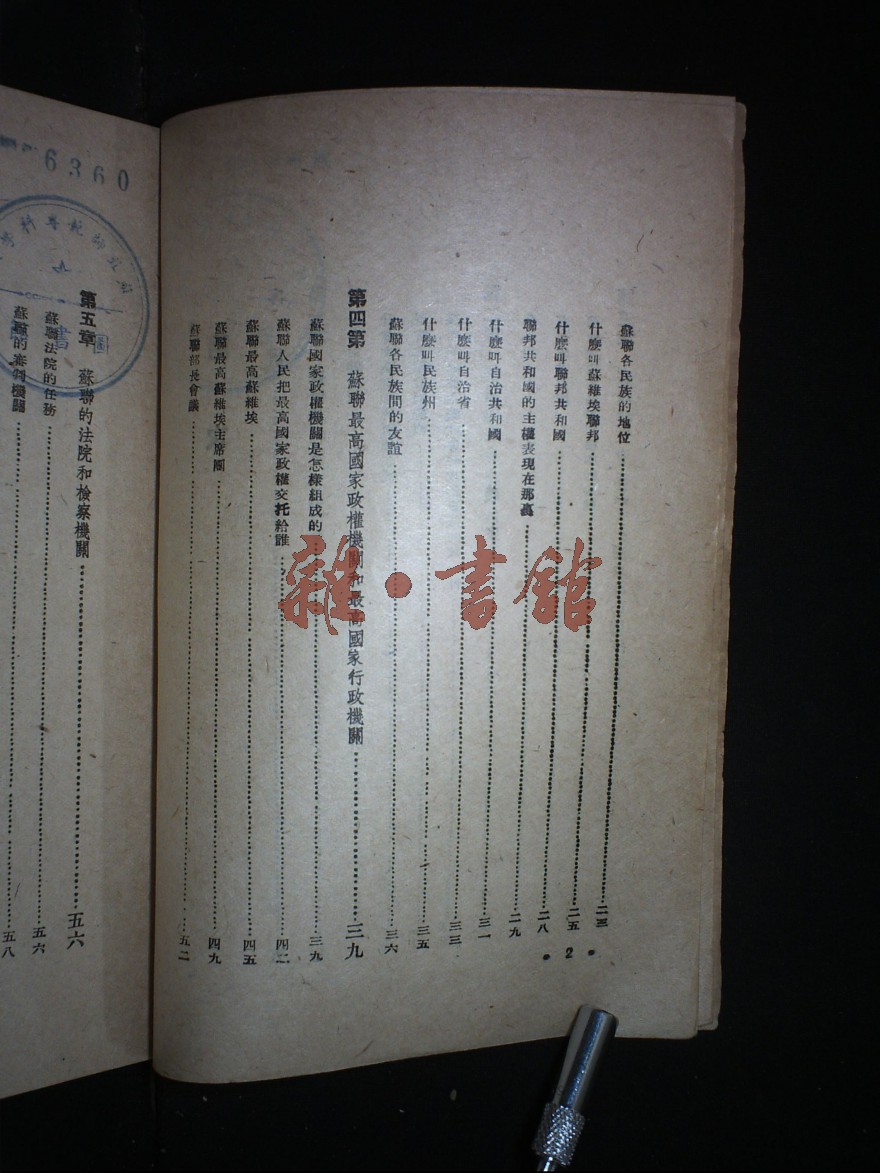 蘇聯各民族的地位……二三
什麼叫蘇維埃聯邦……二五
什麼叫聯邦共和國……二八
聯邦共和國的主權表現在那裏……二九
什麼叫自治共和國……三一
什麼叫自治省……三三
什麼叫民族州……三五
蘇聯各民族間的友誼……三六
第四第　蘇聯最高國家政權機關和最高國家行政機關……三九
蘇聯國家政權機關是怎樣組成的……三九
蘇聯人民把最高國家政權交托給誰……四二
蘇聯最高蘇維埃……四五
蘇聯最高蘇維埃主席團……四九
蘇聯部長會議……五二
• 2 •
第五章　蘇聯的法院和檢察機關……五六
蘇聯法院的任務……五六
蘇聯的審判機關……五八
6360
科專範師
書圖
雜·書館